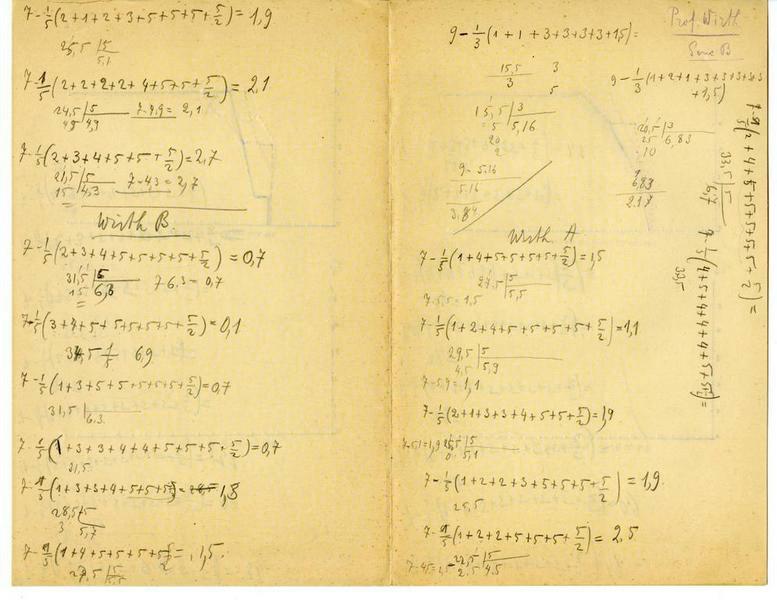 7-1/5(2+1+2+3+5+5+5+5/2)=1,9
25,5 |5
5,1
7-1/5(2+2+2+2+4+5+5+5/2)=2,1
24,5 |5 7-4,9= 2,1
45 | 4,9
7-1/5(2+3+4+5+5+5/2)=2,7
21,5 |5 7-4,3=2,7
15 | 4,3
Wirth B.
7-1/5(2+3+4+5+5+5+5+5/2)=0,7
31,5 |5
15 | 6,3 7-6,3=0,7
7-1/5(3+4+5+5+5+5+5+5/2)=0,1
34,5 1/5 6,9
7-1/5(1+3+5+5+5+5+5+5/2)=0,7
31,5
6,3
7-1/5(1+3+3+4+4+5+5+5+5/2)=0,7
31,5
7-1/5(1+3+3+4+5+5+5+5/2)= 1,3
28,5 5
3 5,7
7-1/5(1+4+5+5+5+5+5/2)= 1,5.
27,5 |5
5,5
Prof. Wirth
Serie B
9-1/3(1+1+3+3+3+3+1,5)=
15,5
3
3
5
15,5 |3
5 | 5,16
20
2
9-5,16
5,16
3,84
9-1/3(1+2+1+3+3+3+3+3
+1,5)
20,5 |3
25 | 6,83
10
9
6,83
2,17
Wirth A
7-1/5(1+4+5+5+5+5+5/2)=1,5
27,5 |5
5,5
7-5,5=1,5
7-1/5(1+2+4+5+5+5+5+5/2)=1,1
29,5 |5
4,5 | 5,9
7-5,9=1,1
7-1/5(2+1+3+3+4+5+5+5/2)=1,9
7-5,1=1,9 25,5 |5
0 | 5,1
7-1/5(1+2+2+5+5+5+5/2)=1,9
25,5
7-1/5(1+2+2+5+5+5+5/2)=2,5
7-4,5=2,5 22,5 |5
2,5 | 4,5
7-1/5(2+4+5+5+5+5+5+5/2)=
33,5 |5
6,7
33,5